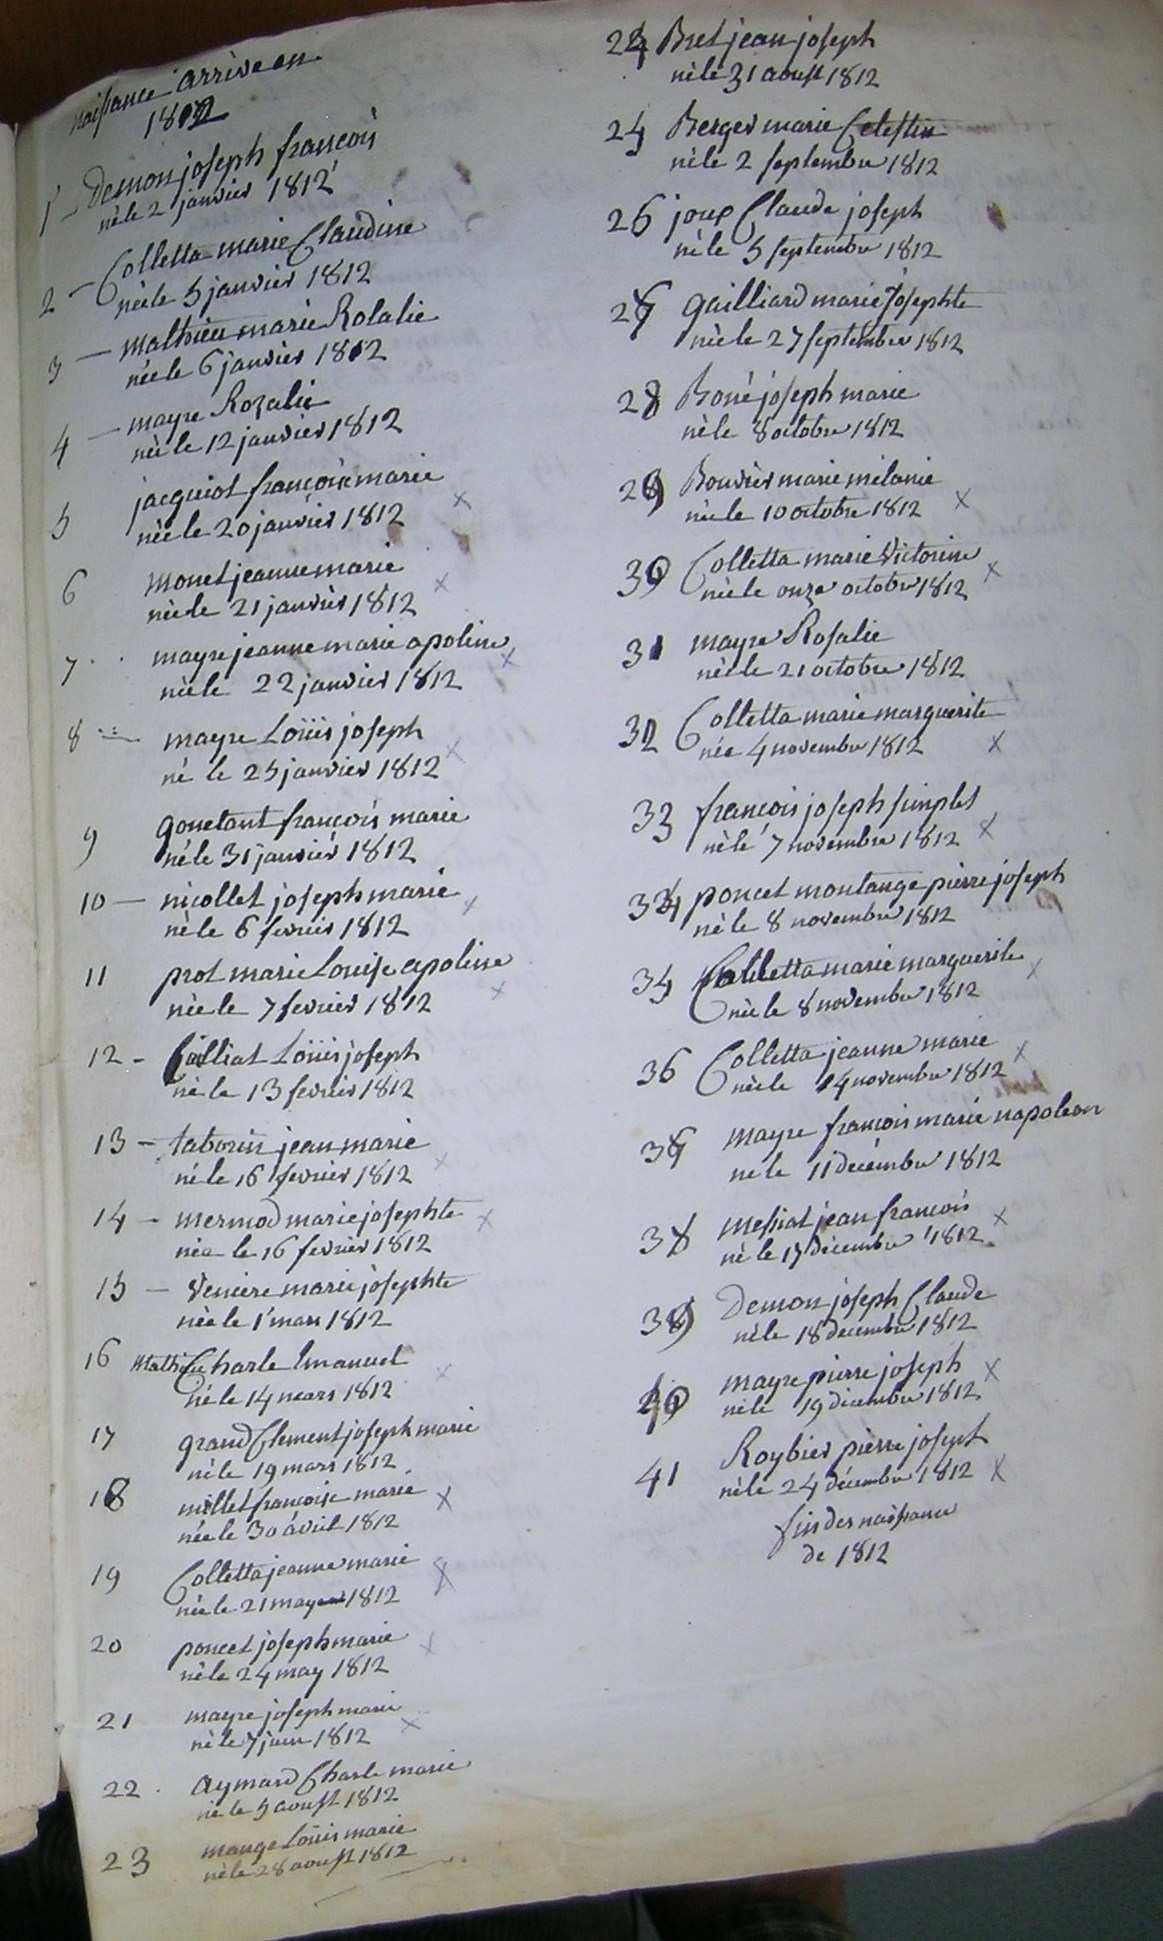 naissance arrivée en
1812
1 - Demon joseph francois
né le 2 janvier 1812
2 - Colletta marie Claudine
née le 5 janvier 1812
3 - mathieu marie Rosalie
née le 6 janvier 1812
4 - mayre Rozalie
née le 12 janvier 1812
5 jacquiot francoise marie
née le 20 janvier 1812
6 monet jeanne marie
née le 21 janvier 1812
7 mayre jeanne marie apoline
née le 22 janvier 1812
8 mayre Loüis joseph
né le 25 janvier 1812
9 gonetant francois marie
né le 31 janvier 1812
10 - nicollet joseph marie
né le 6 fevrier 1812
11 prost marie Louise apoline
née le 7 fevrier 1812
12 - Gailliat Loüis joseph
né le 13 fevrier 1812
13 - taborin jean marie
né le 16 fevrier 1812
14 - mermod marie josephte
née le 16 fevrier 1812
15 - Veniere marie josephte
née le 1 mars 1812
16 Mathieu Charle Emanuel
né le 14 mars 1812
17 grand Clement joseph marie
né le 19 mars 1812
18 millet francoise marie
née le 30 avril 1812
19 Colletta jeanne marie
née le 21 may 1812
20 poncet joseph marie
né le 24 may 1812
21 mayre joseph marie
né le 7 juin 1812
22 Aymard Charle marie
né le 5 aoust 1812
23 mange Loüis marie
né le 28 aoust 1812
24 Bret jean joseph
né le 31 aoust 1812
25 Berger marie Celestin
né le 2 septembre 1812
26 joux Claude joseph
né le 5 septembre 1812
27 gailliard marie Josephte
née le 27 septembre 1812
28 Boné joseph marie
né le 8 octobre 1812
29 Bouvier marie mélanie
née le 10 octobre 1812
30 Colletta marie Victorine
née le onze octobre 1812
31 mayre Rosalie
née le 21 octobre 1812
32 Colletta marie marguerite
née 4 novembre 1812
33 francois joseph simplet
né le 7 novembre 1812
34 poncet montange pierre joseph
né le 8 novembre 1812
35 Colletta marie marguerite
née le 8 novembre 1812
36 Colletta jeanne marie
née le 14 novembre 1812
37 mayre francois marie napoleon
né le 11 decembre 1812
38 messiat jean francois
né le 17 décembre 1812
39 Demon joseph Claude
né le 18 decembre 1812
40 mayre pierre joseph
né le 19 decembre 1812
41 Roybier pierre joseph
né le 24 décembre 1812
fin des naissance
de 1812